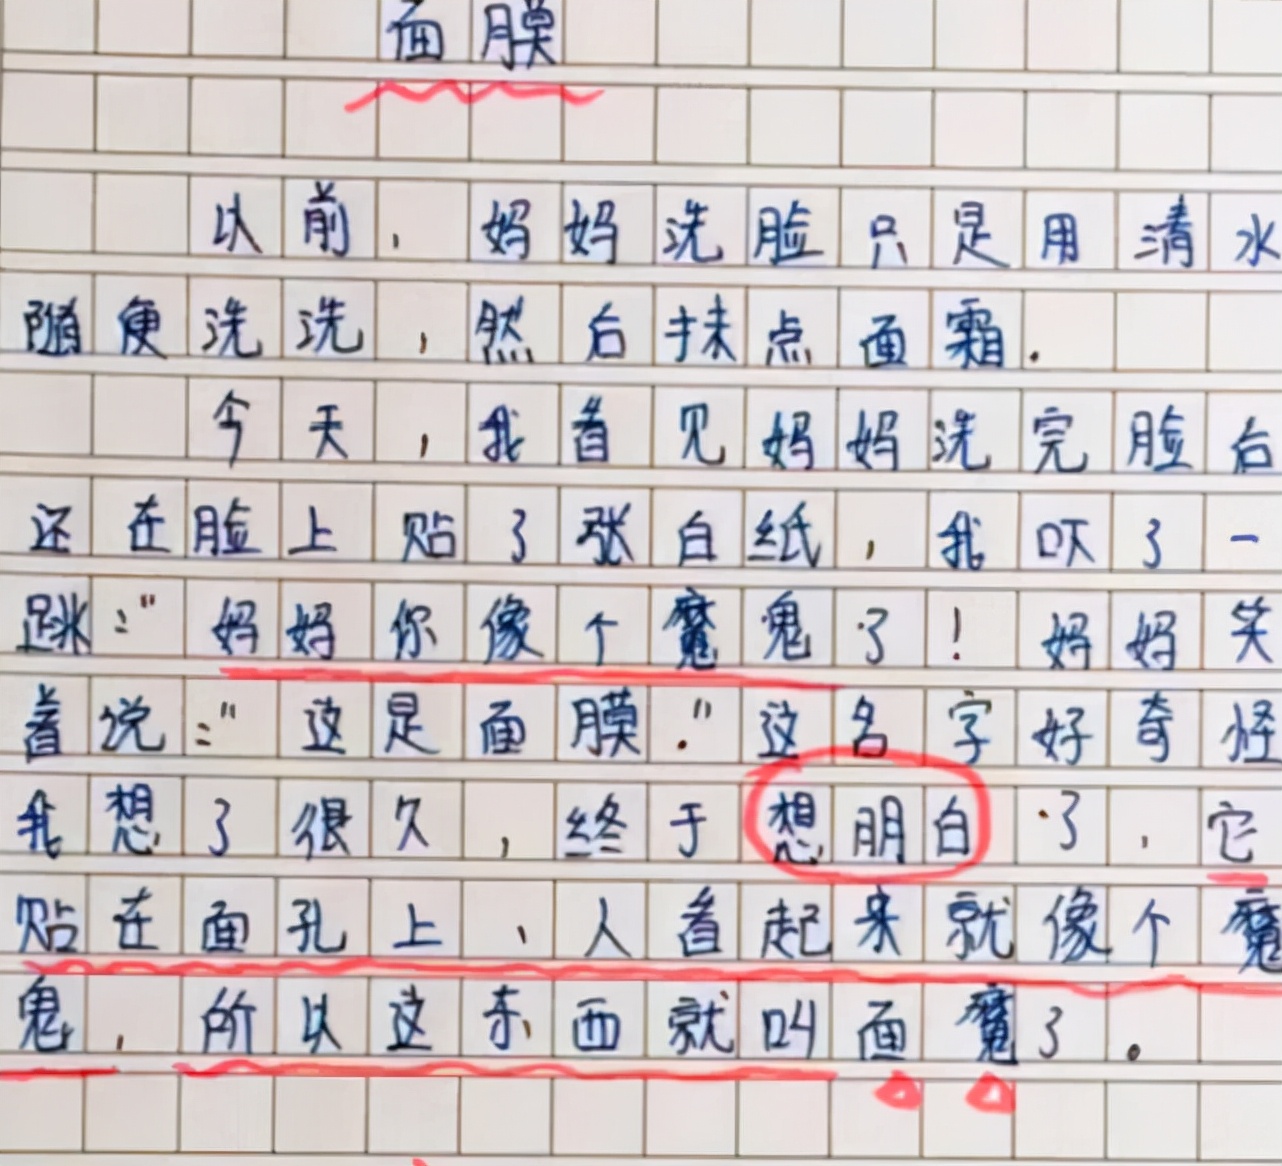 面膜
以前，妈妈洗脸只是用清水
随便洗洗，然后抹点面霜.
今天，我看见妈妈洗完脸后
还在脸上贴了张白纸，我吓了一
跳:"妈妈你像个魔鬼了！妈妈笑
着说:"这是面膜."这名字好奇怪
我想了很久，终于想朋白了，它
贴在面孔上、人看起来就像个魔
鬼，所以这东西就叫面魔了.